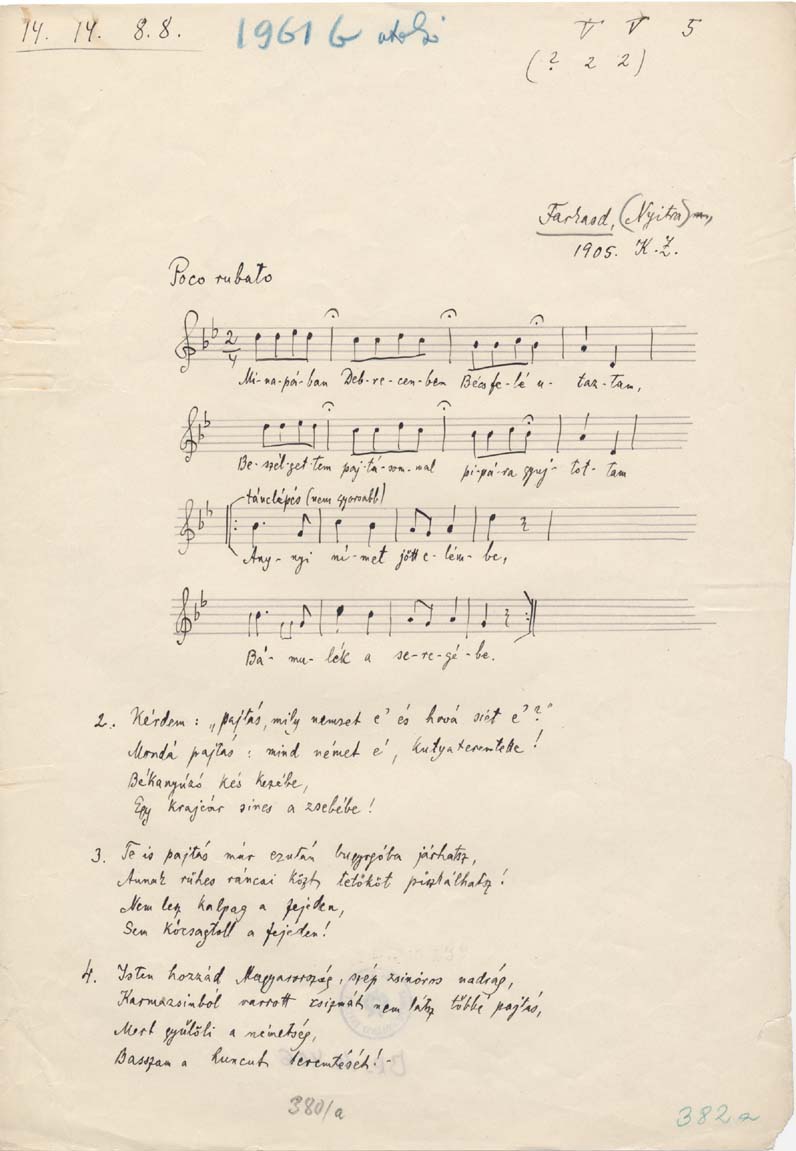 14. 14. 8.8.
1961 G utolsó
V V 5
(? 2 2)
Farkasd, (Nyitra) m,
1905. K.Z.
Poco rubato
2/4
Mi-na-pá-ban Deb-re-cen-ben Bécsfe-lé u-taz-tam,
Be-szél-get-tem paj-tá-som-mal pi-pá-ra gyuj-tot-tam
tánclépés (nem gyorsabb)
Any-nyi ní-met jött e-lém-be,
Bá-mu-lék a se-re-gé-be.
2. Kérdem: „pajtás, mily nemzet e' és hová siét e'?"
Mondá pajtás: mind német e', kutyateremtette!
Békanyúzó kés kezébe,
Egy krajcár sincs a zsebébe!
3. Te is pajtás már ezután bugyogóba járhatsz,
Annak rühes ráncai közt tetököt piszkálhatsz!
Nem lesz kalpag a fejeden,
Sem kócsagtoll a fejeden!
4. Isten hozzád Magyarország, szép zsinóros nadrág,
Karmazsinból varrott csizmát nem látsz többé pajtás,
Mert gyűlöli a németség,
Basszam a huncut teremtését!-
380/a
382a